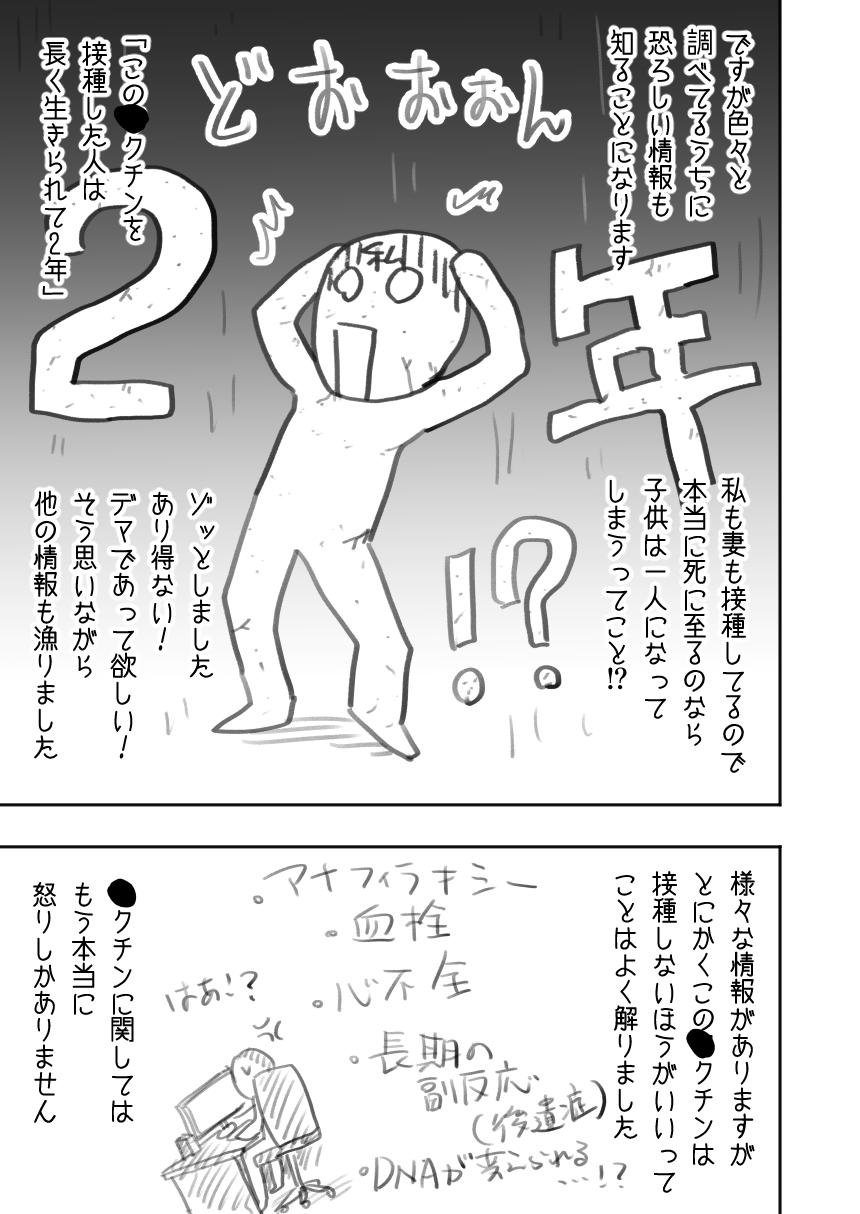 ですが色々と
調べてるうちに
恐ろしい情報も
知ることになります
どおおぉん
「この●クチンを
接種した人は
長く生きられて2年」
2年
私
!?
私も妻も接種してるので
本当に死に至るのなら
子供は一人になって
しまうってこと!?
ゾッとしました
あり得ない!
デマであって欲しい!
そう思いながら
他の情報も漁りました
様々な情報がありますが
とにかくこの●クチンは
接種しないほうがいいって
ことはよく解りました
・アナフィラキシー
・血栓
・心不全
・長期の
副反応
(後遺症)
・DNAが変えられる
…!?
はあ!?
●クチンに関しては
もう本当に
怒りしかありません